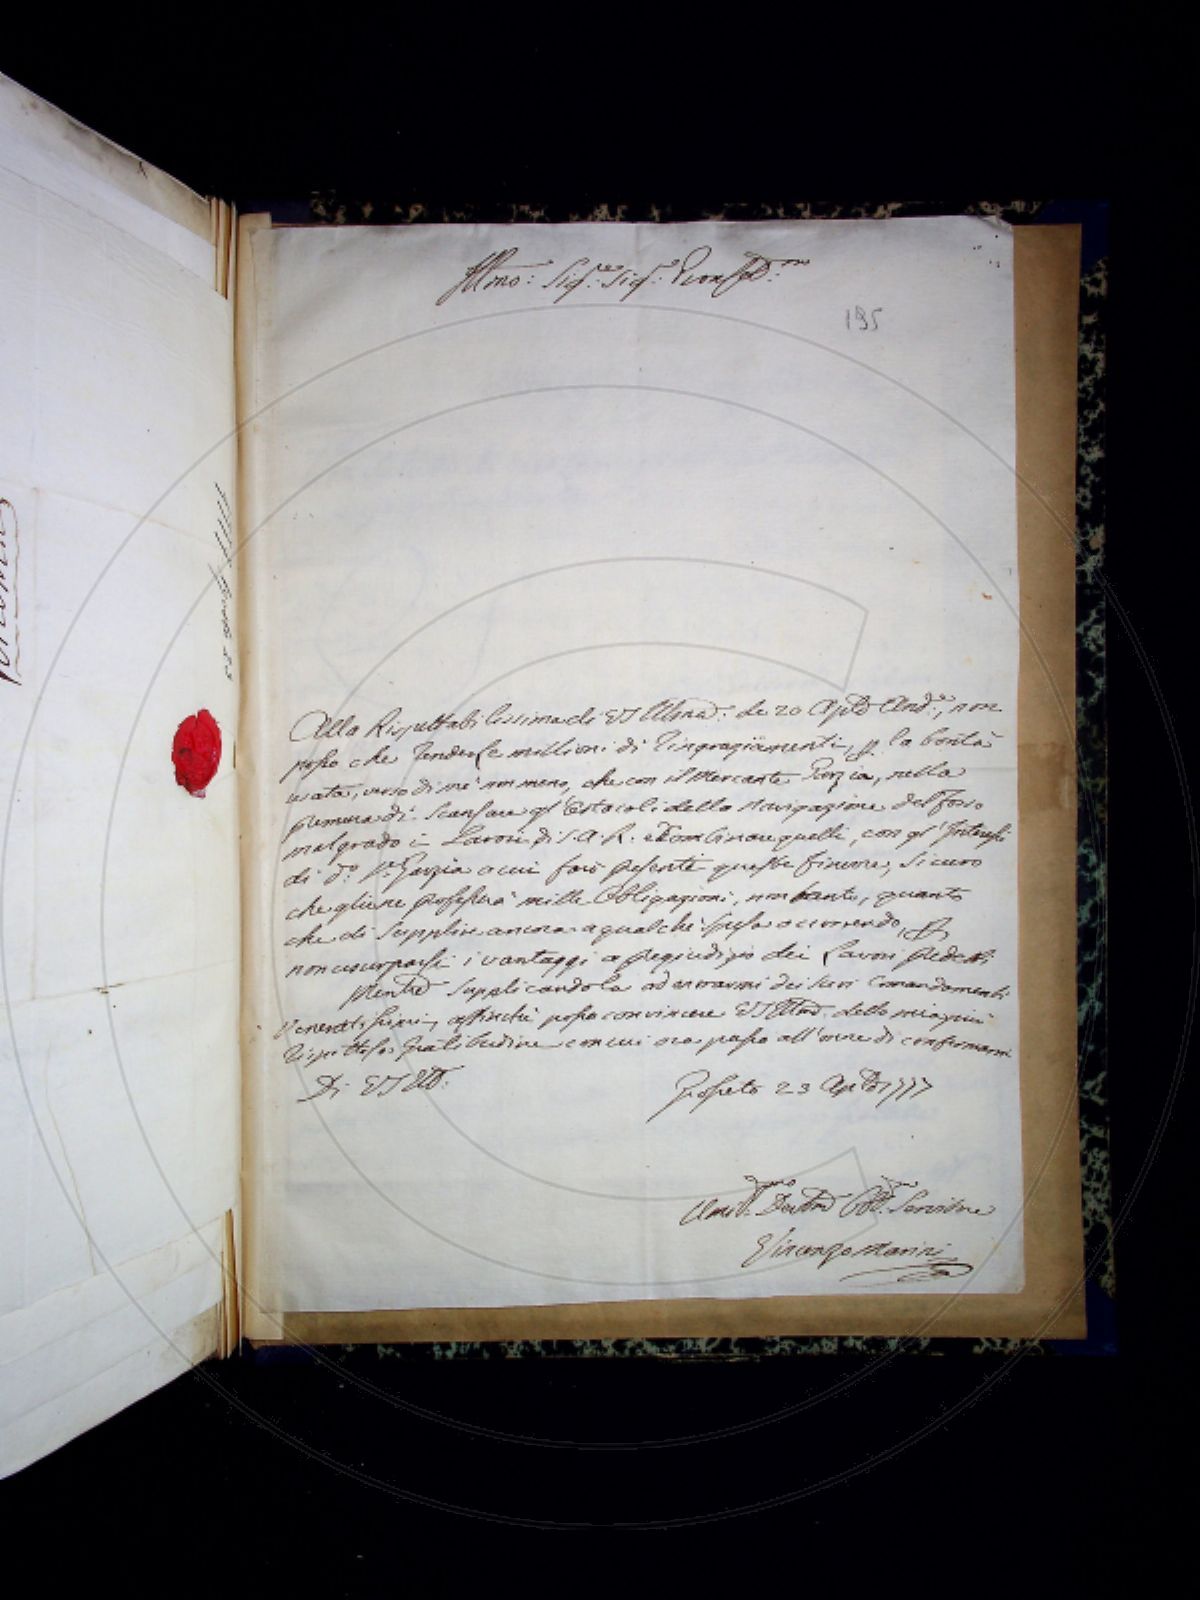 Illmo: Sigre: Sigr: Pron Col:mo
195
Alla Rispettabilissima di VS Illma: de 20 Aple And:te, non
posso che renderLe millioni di ringraziamenti, p. la bontà
usata, verso di me non meno, che con il Mercante Garzia, nella
premura di scansare gl'Ostacoli della Navigazione del Fosso
malgrado i Lavori di S. A. R. e Combinare quelli, con gl'Interessi
di do. Sr. Garzia a cui farò presente queste finezze, sicuro
che gliene professerà mille Obligazioni, non tanto, quanto
che di supplire ancora a qualche spesa occorrendo, p.
non usurparsi i vantaggi a pregiudizio dei Lavori predetti
Mentre supplicandola ad onorarmi dei suoi Comandamenti
Veneratissimi, affinchè possa convincere VS Illma della mia più
rispettosa gratitudine con cui ora passo all'onore di confermarmi
Di VS Ill:
Grosseto 23 Aple 1777
Umo: Devmo Obb:mo Servitore
Vincenzo Marini
23 aprile 1777